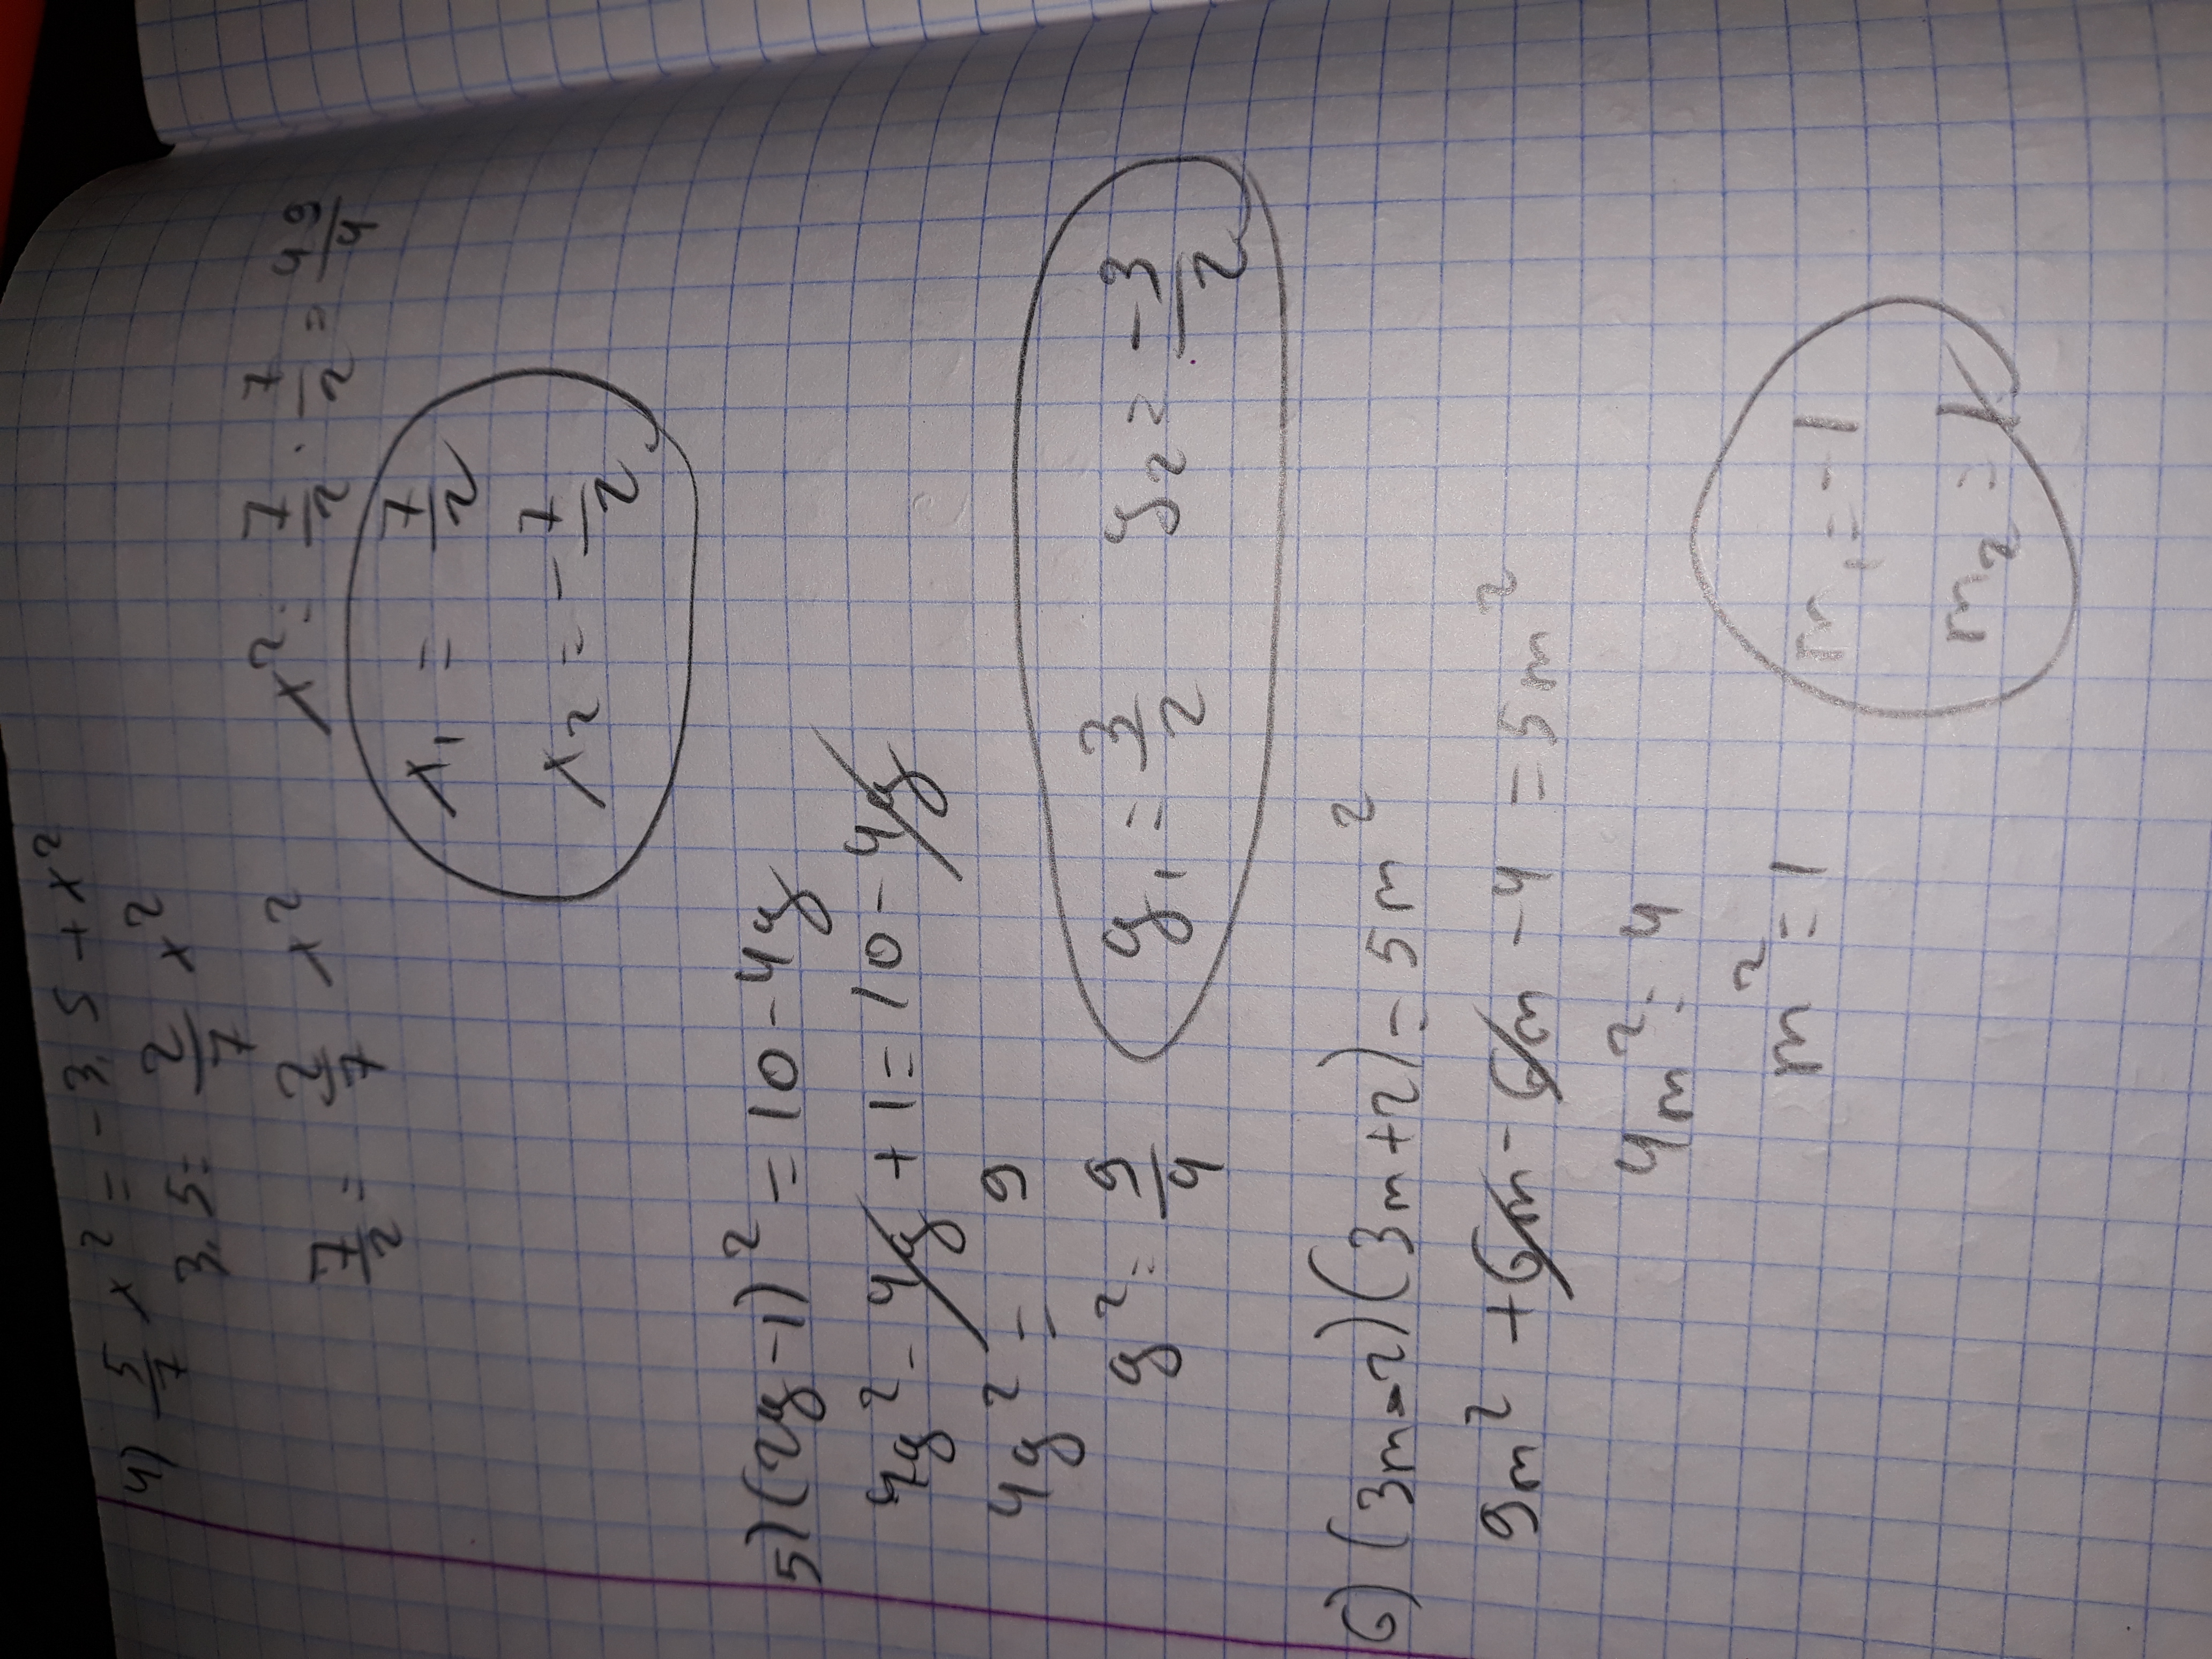 4) 5/7 x² = -3,5 + x²
3,5 = 2/7 x²
7/2 = 2/7 x²
x² = 7/2 · 7/2 = 49/4
x₁ = 7/2
x₂ = - 7/2
5) (2y-1)² = 10-4y
4y² - 4y + 1 = 10 - 4y
4y² = 9
y² = 9/4
y₁ = 3/2 y₂ = - 3/2
6) (3m-2)(3m+2) = 5m²
9m² + 6m - 6m - 4 = 5m²
4m² = 4
m² = 1
m₁ = -1
m₂ = 1